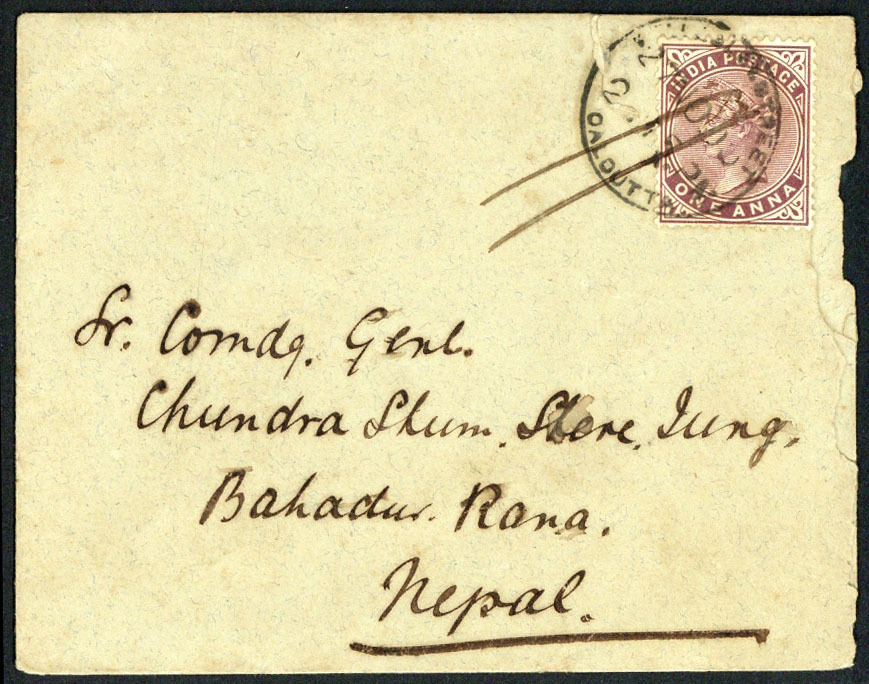 INDIA POSTAGE
ONE ANNA
STREET
CALCUTTA
Sr. Comdg. Genl.
Chundra Shum. Shere. Jung.
Bahadur. Rana.
Nepal.